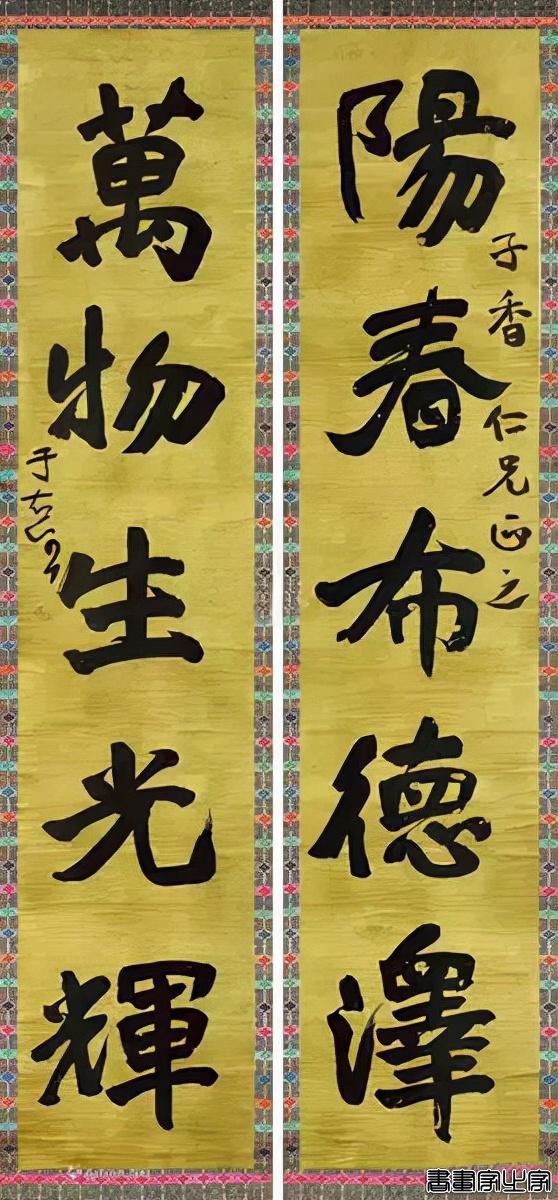 陽春布德澤
子香仁兄正之
萬物生光輝
于右任
書畫家之家